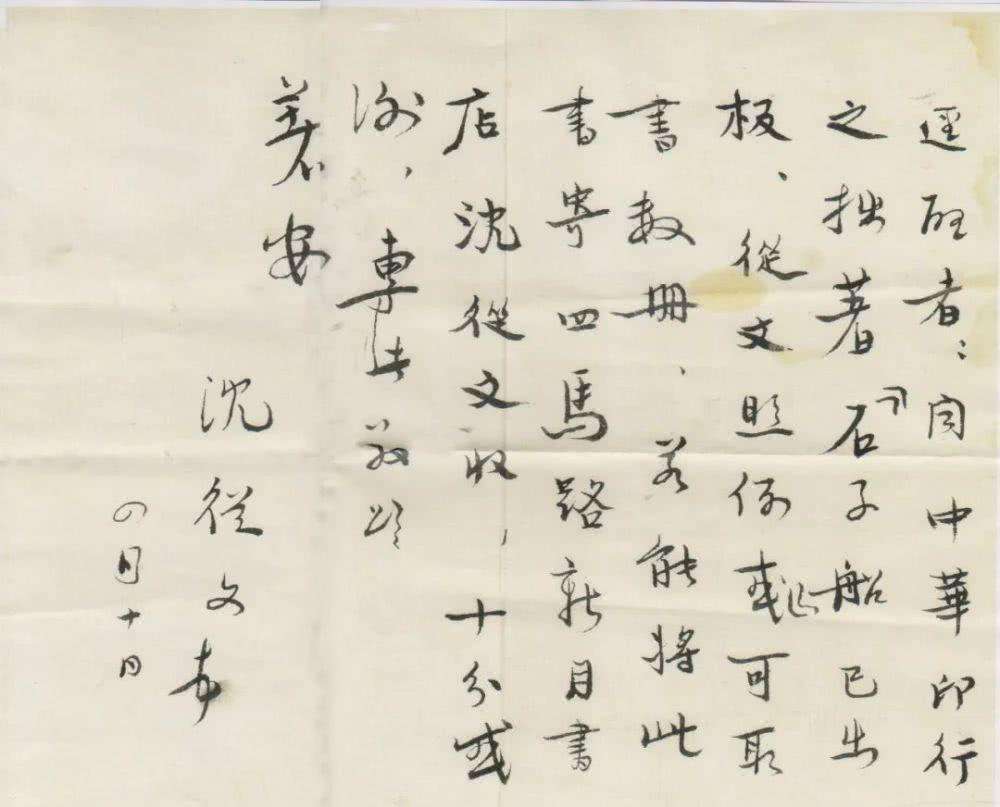 逕啟者：因中華印行
之拙著『石子船』已出
板、從文照例或可取
書数冊、若能將此
書寄四馬路新月書
店沈從文收，十分感
謝，專此敬頌
著安
沈從文
の月十日